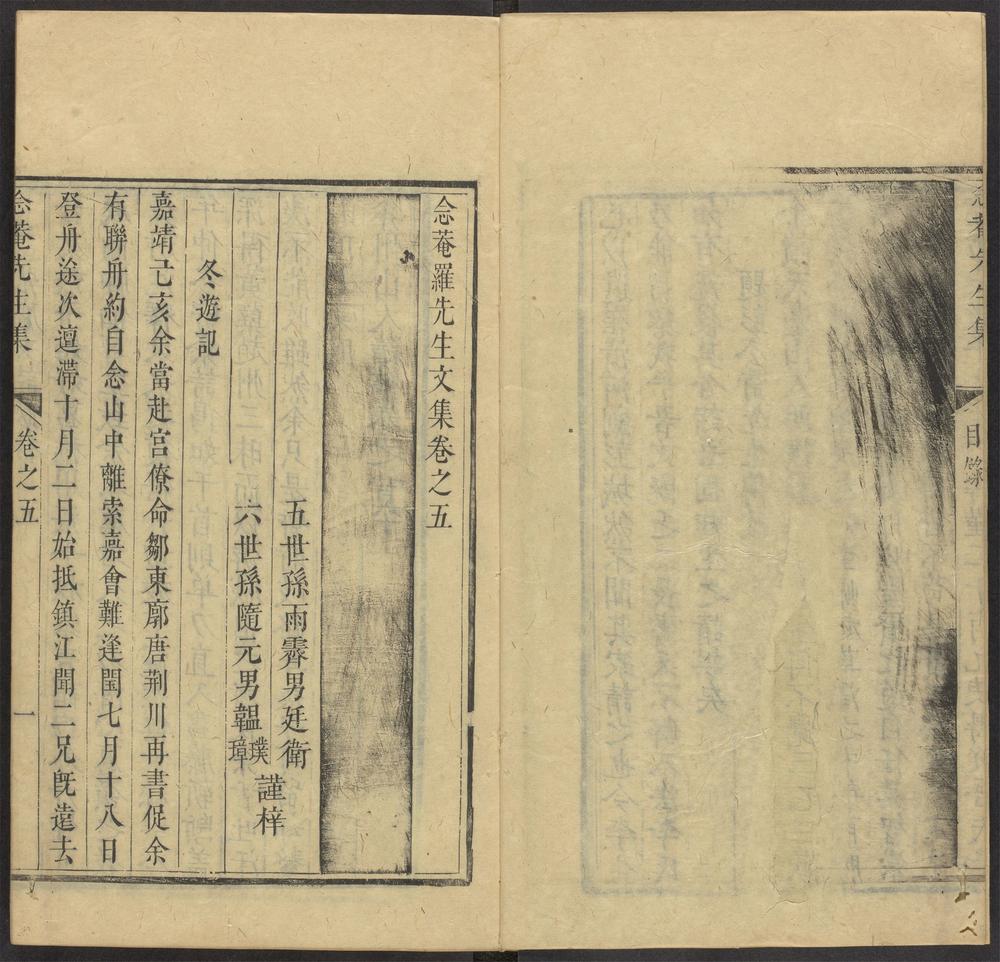 念菴先生集
目錄
念菴羅先生文集卷之五
五世孫雨霽男廷衛
六世孫隨元男韞璞璋
謹梓
冬遊記
嘉靖己亥余當赴宫僚命鄒東廓唐荆川再書促余
有聯舟約自念山中離索嘉會難逢閏七月十八日
登舟途次邅滯十月二日始抵鎮江聞二兄旣遠去
念菴先生集
卷之五
一